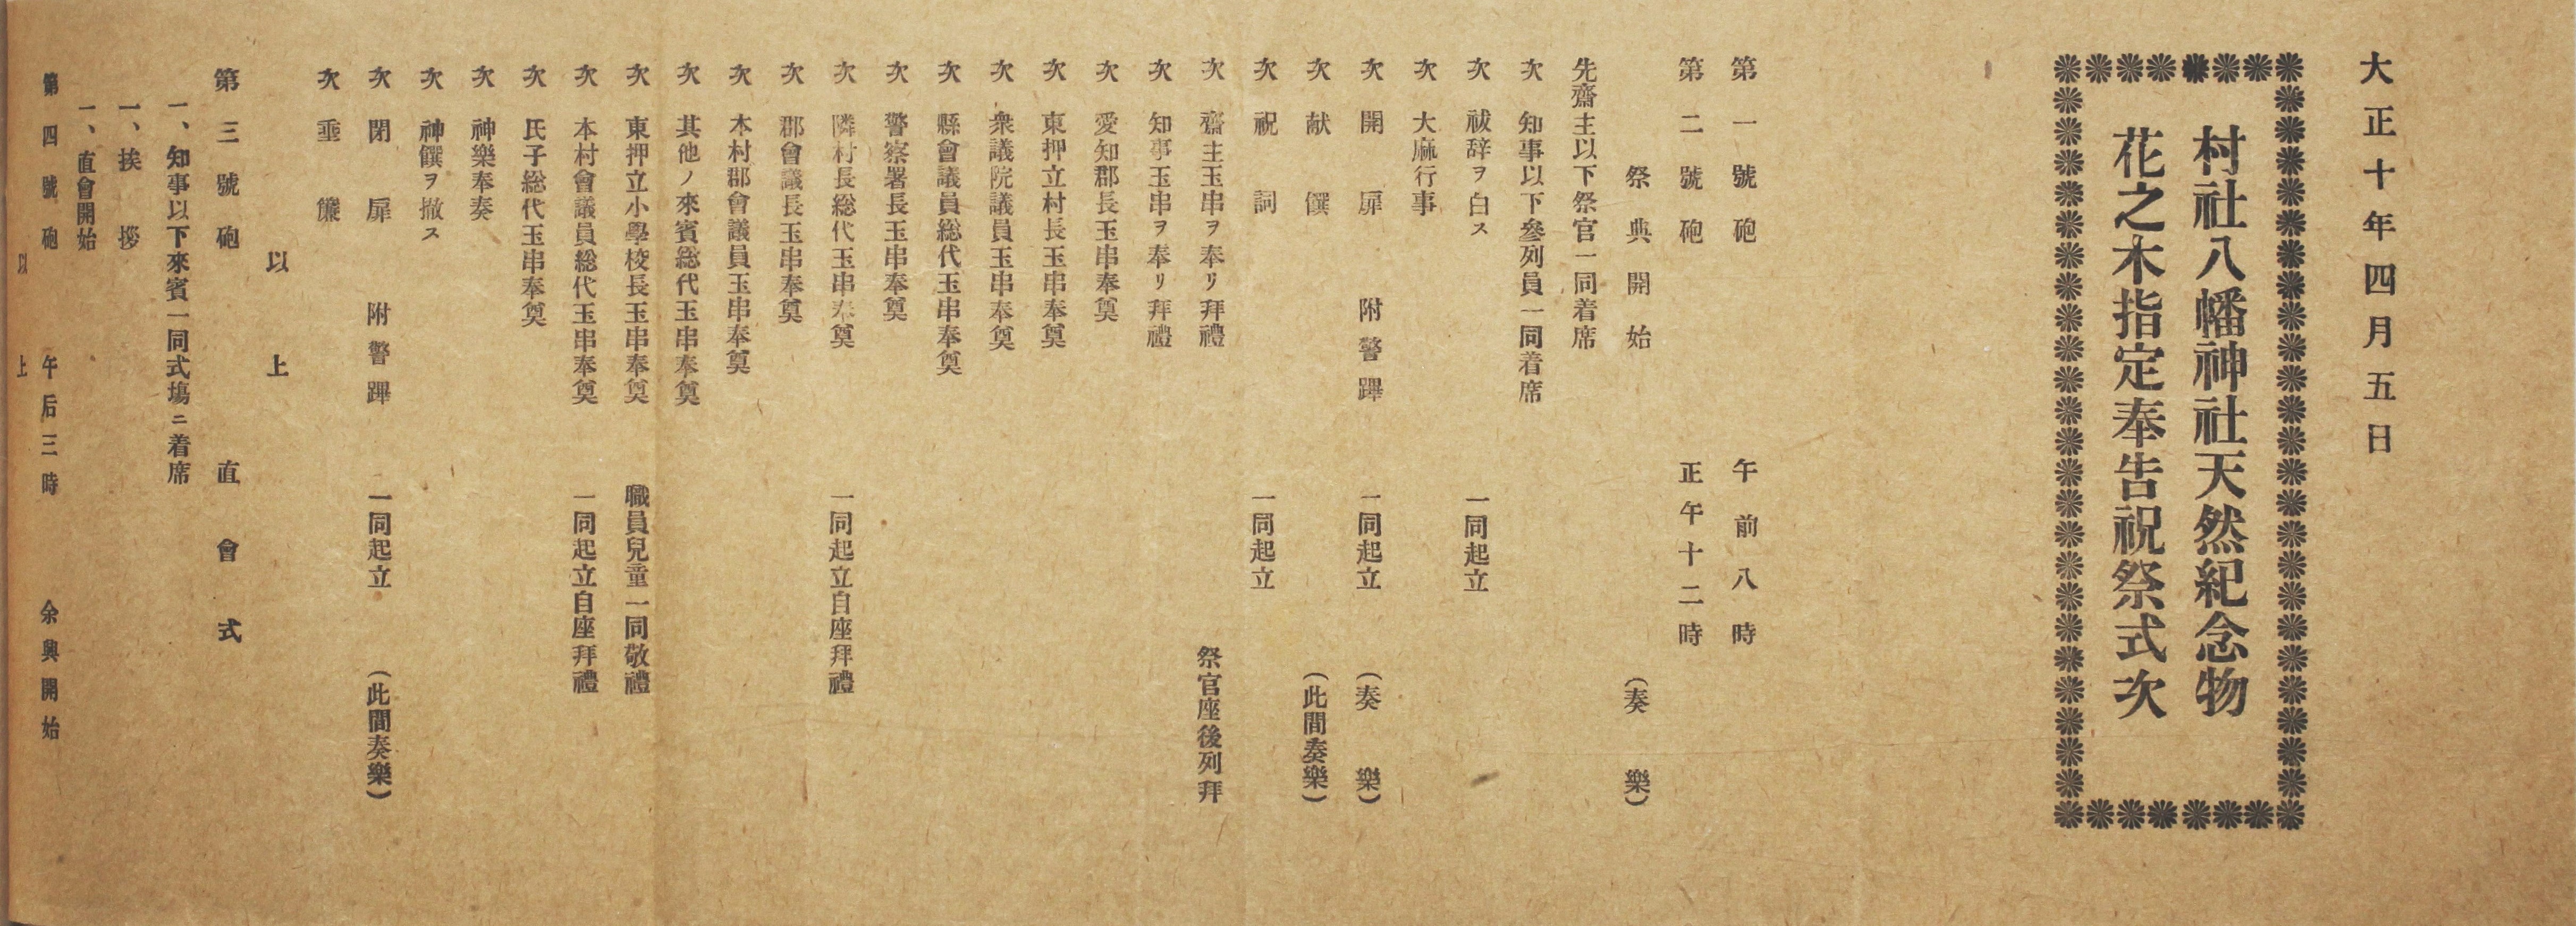 大正十年四月五日
村社八幡神社天然紀念物
花之木指定奉告祝祭式次
第一號砲　午前八時
第二號砲　正午十二時
祭典開始　（奏樂）
先齋主以下祭官一同着席
次　知事以下參列員一同着席
次　祓辞ヲ白ス　一同起立
次　大麻行事
次　開扉　附警蹕　一同起立　（奏樂）
次　献饌　（此間奏樂）
次　祝詞　一同起立
次　齋主玉串ヲ奉リ拜禮　祭官座後列拜
次　知事玉串ヲ奉リ拜禮
次　愛知郡長玉串奉奠
次　東押立村長玉串奉奠
次　衆議院議員玉串奉奠
次　縣會議員総代玉串奉奠
次　警察署長玉串奉奠
次　隣村長総代玉串奉奠　一同起立自座拜禮
次　郡會議長玉串奉奠
次　本村郡會議員玉串奉奠
次　其他ノ來賓総代玉串奉奠
次　東押立小學校長玉串奉奠　職員兒童一同敬禮
次　本村會議員総代玉串奉奠　一同起立自座拜禮
次　氏子総代玉串奉奠
次　神樂奉奏
次　神饌ヲ撤ス
次　閉扉　附警蹕　一同起立　（此間奏樂）
次　垂簾
以上
第三號砲　直會式
一、知事以下來賓一同式塲ニ着席
一、挨拶
一、直會開始
第四號砲　午后三時　余興開始
以上